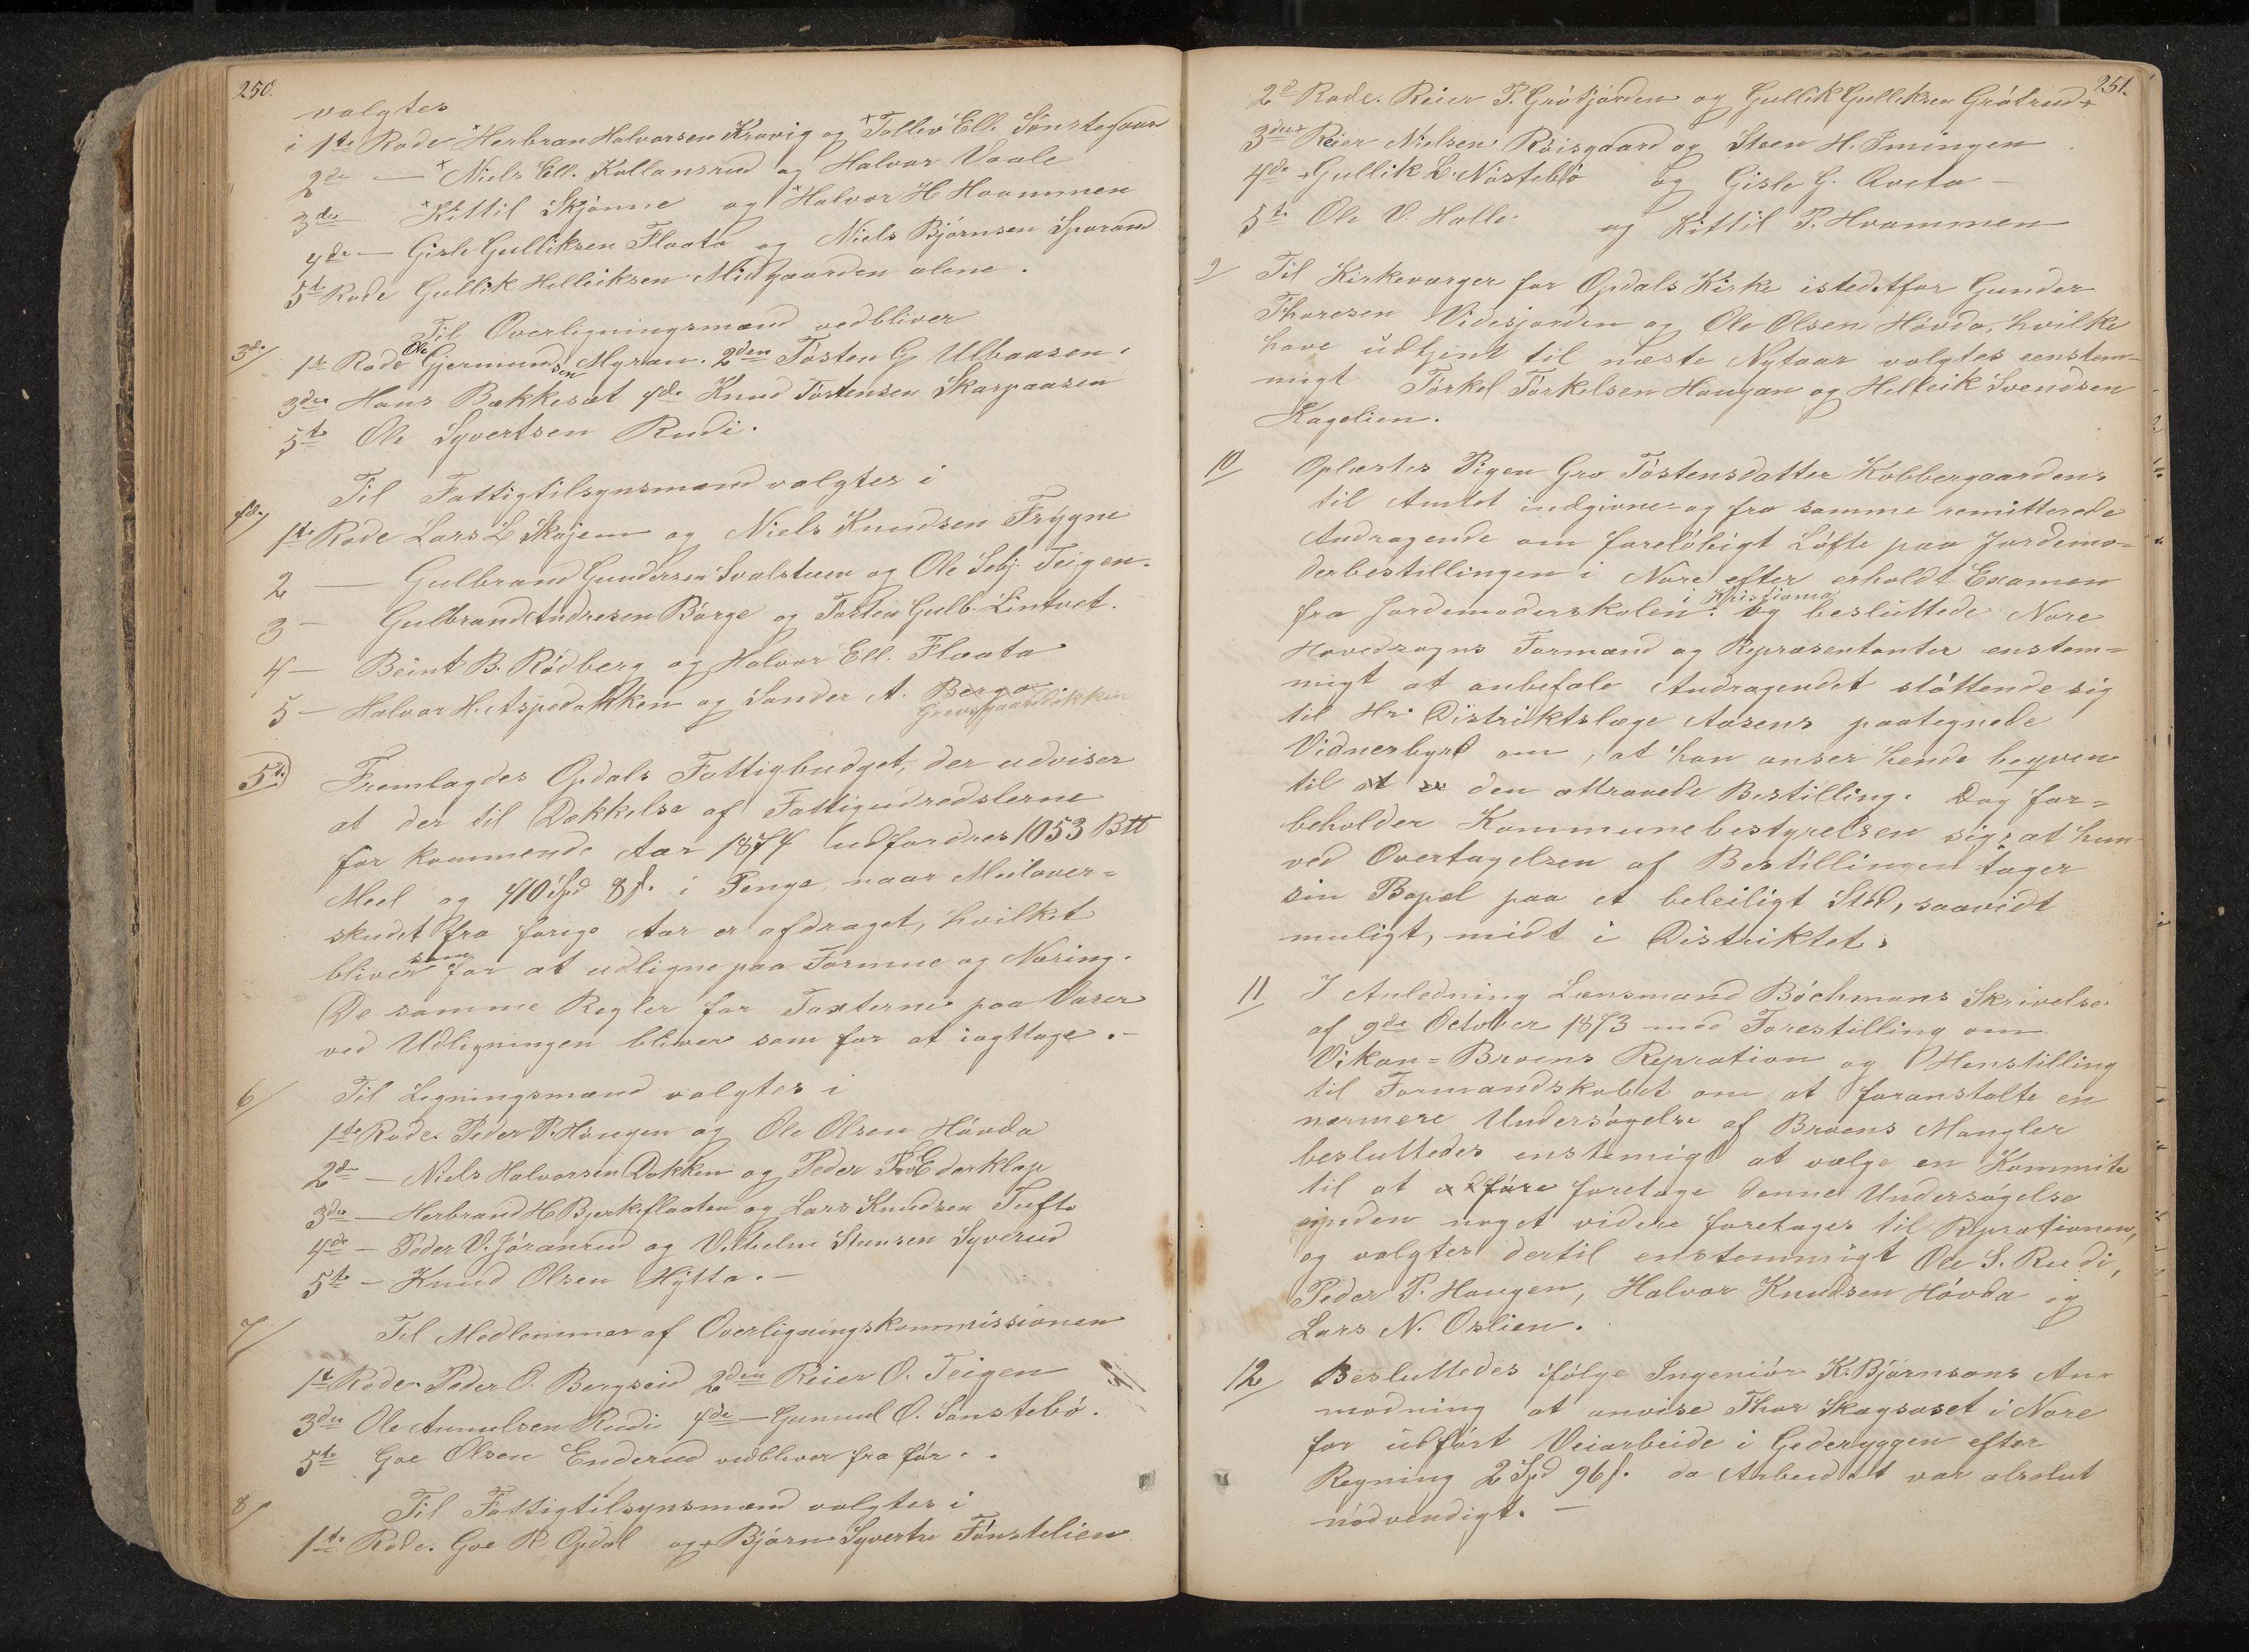 250.
valgtes
i 1ste Rode Herbran Halvorsen Kravig og Tollev Ell. Sønstegaar
2de — Niels Ell. Kollansrud og Halvor Vaale
3die Kittil Skjønne og Halvor H Hvammen
4de — Gisle Gulliksen Flaata og Niels Bjørnsen Sporand
5te Rode Gullik Helleiksen Midgaarden alene.
3de/ Til Overligningsmænd vedbliver
1te Rode Ole Gjermundsen Myran. 2den Tosten G Ulbaasen.
3die Hans Bakkesæt 4de Knud Tostensen Skarpaasen
5te Ole Syvertsen Rudi.
4de/ Til Fattigtilsynsmænd valgtes i
1ste Rode Lars L Skajem og Niels Knudsen Frygne
2 — Gulbrand Gundersen Svalstuen og Ole Sebj. Teigen.
3 — Gulbrand Andresen Børge og Tosten Gulb. Lintvet.
4 — Beint B. Rødberg og Halvor Ell. Flaata
5 — Halvor H. Aspedokken og Sander A. Berga.
5te) Fremlagdes Opdals Fattigbudget, der udviser
at der til Dækkelse af Fattigudredslerne
for kommende Aar 1874 udfordres 1053 Btt
Meel og 410 Spd 8 s. i Penge, naar Meelover=
skudet fra forige Aar er afdraget, hvilket
bliver som før at udligne paa Formue og Næring.
De samme Regler for Taxterne paa Varer
ved Udligningen bliver som før at iagttage. -
6/ Til Ligningsmænd valgtes i
1ste Rode. Peder P. Haugen og Ole Olsen Hóvda
2den — Niels Halvorsen Dokken og Peder P. Ederklep
3die — Herbrand H Bjerkeflaaten og Lars Knudsen Tufto
4de — Peder V. Jóranrud og Vilhelm Steensen Syverud
5te — Knud Olsen Hytta. -
7/ Til Medlemmer af Overligningskommissionen
1te Rode. Peder O. Bergseid 2den Reier O. Teigen
3die Ole Amundsen Rudi 4de — Gunnul O. Sønstebø.
5te Goe Olsen Enderud vedbliver fra før. .
8/ Til Fattigtilsynsmænd valgtes i
1te Rode. Goe R Opdal og Bjørn Syverts Tónstelien
251.
2de Rode. Reier P. Grótjorden og Gullik Gulliksen Grótrud
3die Reier Nielsen Róisgaard og Steen H. Imingen
4de Gullik L. Nóstebó og Gisle G. Aveta —
5te Ole V. Halle og Kittil P. Hvammen
9/ Til Kirkeværger for Opdals Kirke istedetfor Gunder
Thoresen Videsjorden og Ole Olsen Hóvda, hvilke
have udtjent til næste Nytaar valgtes eenstem=
migt Torkel Torkelsen Haugan og Helleik Svendsen
Kagelien.
10/ Oplæstes Pigen Gro Tostensdatter Kobbergaardens
til Amtet indgivne og fra samme remitterede
Andragende om foreløbigt Løfte paa Jordemo=
derbestillingen i Nore efter erholdt Examen
fra Jordemoderskolen i Kristiania. og besluttede Nore
Hovedsogns Formænd og Repræsentanter enstem=
migt at anbefale Andragendet støttende sig
til Hr. Distriktslæge Aasens paategnede
Vidnesbyrd om, at han anser hende begven
til at den attraaede Bestilling. Dog for=
beholder Kommunebestyrelsen sig, at hun
ved Overtagelsen af Bestillingen tager
sin Bopæl paa et beleiligt Sted, saavidt
muligt, midt i Distriktet.
11/ I Anledning Lensmand Bóchmans Skrivelse
af 9de October 1873 med Forestilling om
Vikan=Broens Repration og Henstilling
til Formandskabet om at foranstalte en
nærmere Undersøgelse af Broens Mangler
besluttedes enstemigt at vælge en Kommite
til at foretage denne Undersøgelse
inden noget videre foretages til Reprationen,
og valgtes dertil enstemmigt Ole S. Rudi,
Peder P. Haugen, Halvor Knudsen Hóvda og
Lars N. Oslien.
12/ Besluttedes ifølge Ingeniør K. Bjørnsons An=
modning at anvise Thor Skogsaset i Nore
for udført Veiarbeide i Gederyggen efter
Regning 2 Spd 96 s. da Arbeidet var absolut
nødvendigt. —